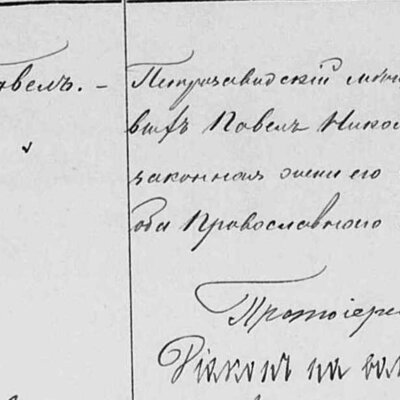 Павелъ. – Петрозаводскій мѣщ
Павелъ Никол
законная жена его
оба Православнаго
Протоіере
Діаконъ на ва